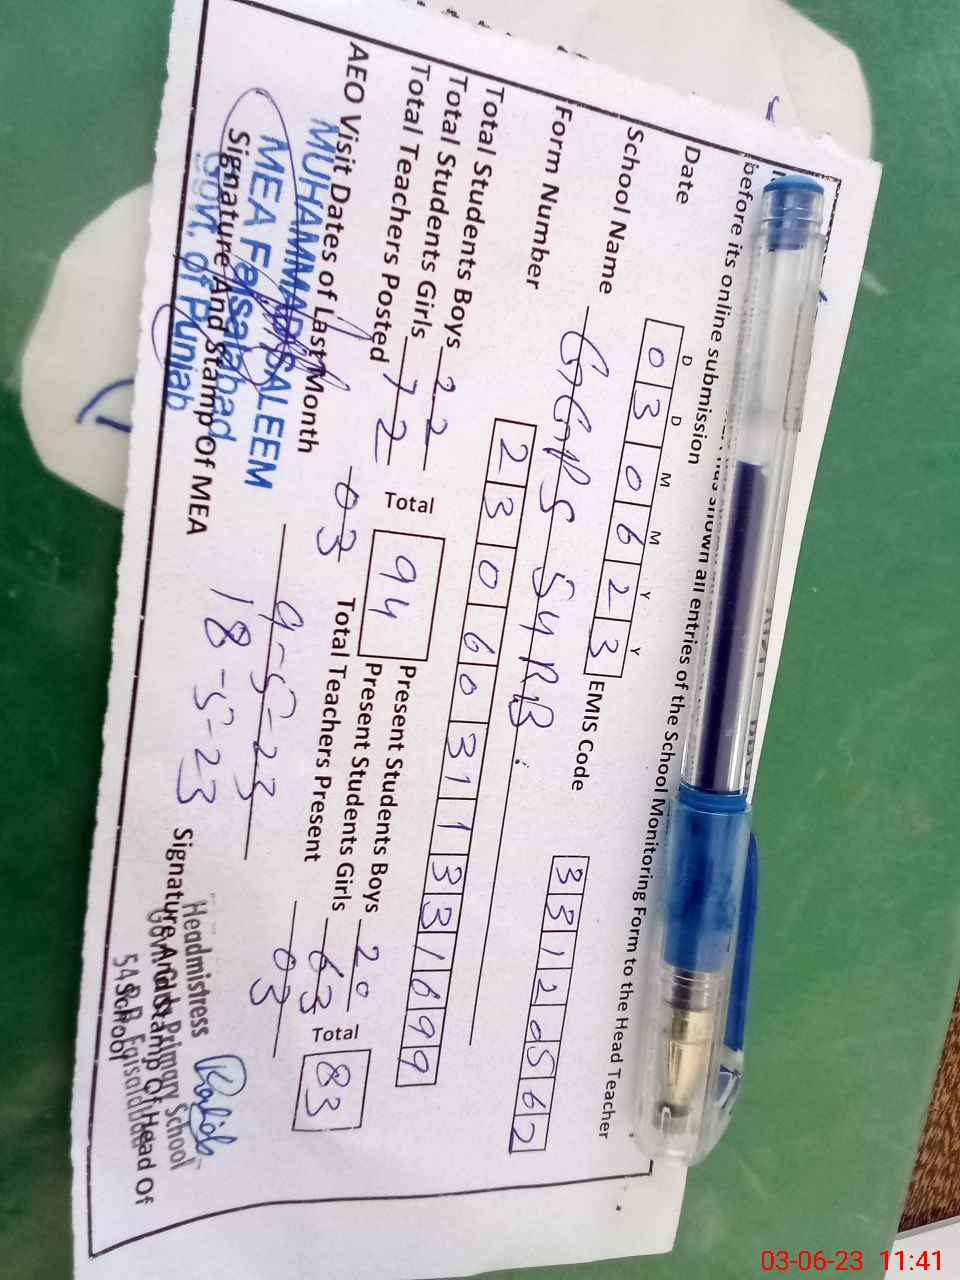 before its online submission
has shown all entries of the School Monitoring Form to the Head Teacher
D D M M Y Y
Date 0 3 0 6 2 3 EMIS Code 3 3 1 2 0 5 6 2
School Name GGPS 54 RB.
Form Number 2 3 0 6 0 3 1 1 3 3 1 6 9 9
Total Students Boys 22 Total 94 Present Students Boys 20 Total 83
Total Students Girls 72 Present Students Girls 63
Total Teachers Posted 03 Total Teachers Present 03
AEO Visit Dates of Last Month 9-5-23
18-5-23
MUHAMMAD SALEEM
MEA Faisalabad
Govt. of Punjab
Signature And Stamp Of MEA
Headmistress
Govt. Girls Primary School
54 R.B. Faisalabad
Signature And Stamp Of Head Of
School
03-06-23 11:41